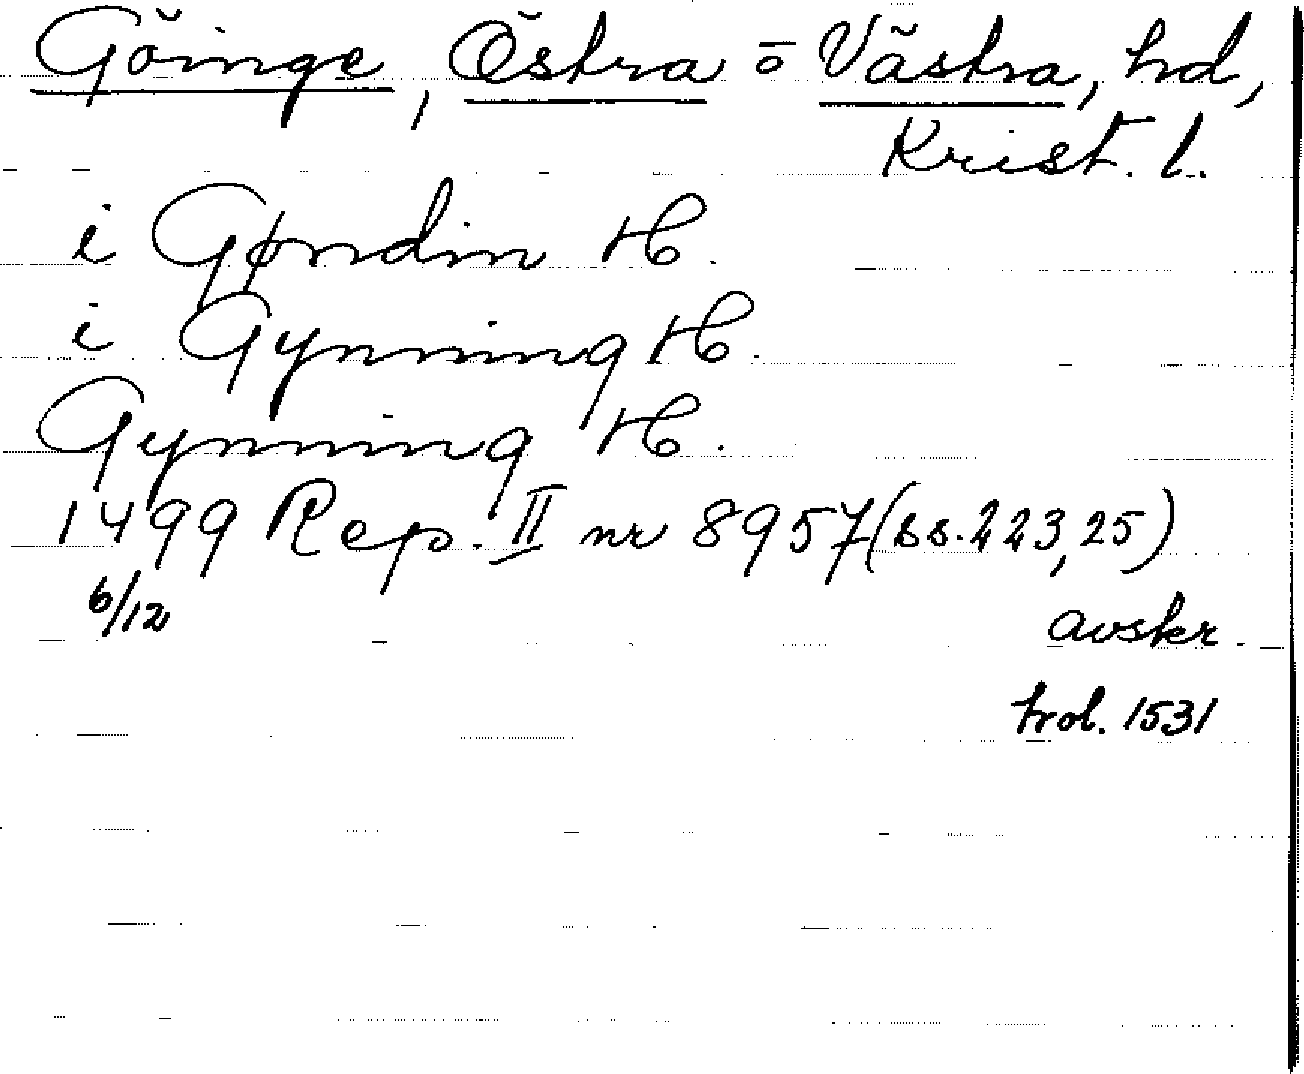 Göinge, Östra o Västra, hd,
Krist. l.
i Gøndin H.
i Gynning H.
Gynning H.
1499 Rep. II nr 8957 (ss. 223, 25)
6/12 avskr.
trol. 1531